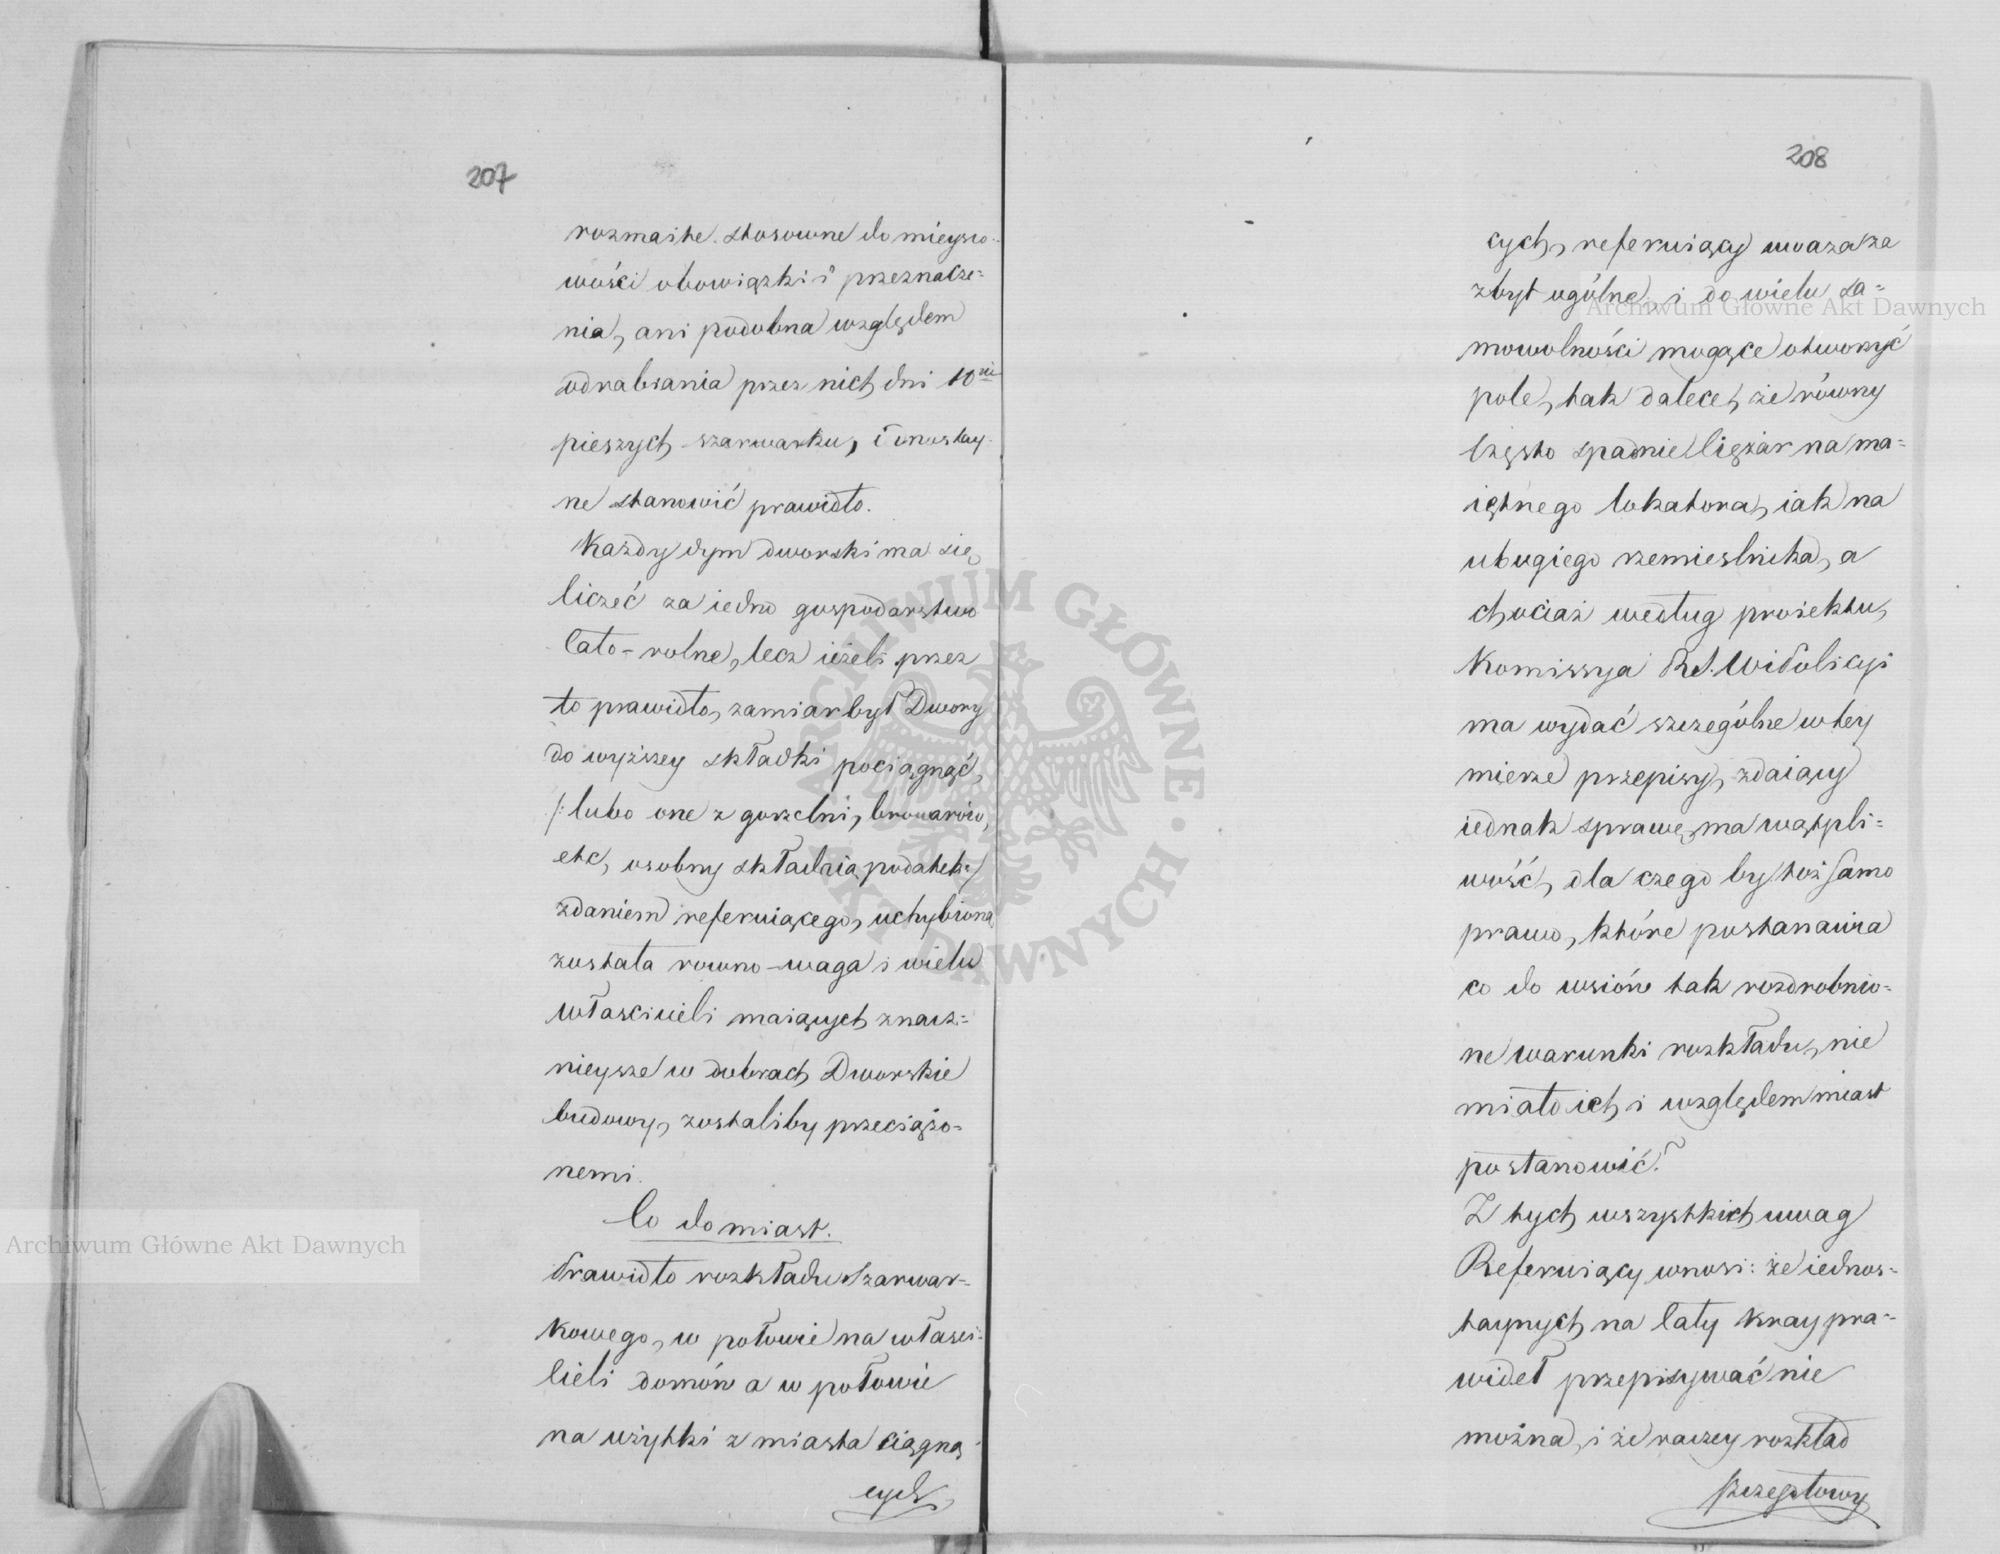 207
rozmaite stosowne do mieysco-
wości obowiązki i przeznacze=
nia, ani podobna względem
odrabiania przez nich dni 10ciu
pieszych szarwarku, iednostay-
ne stanowić prawidło.
Każdy dym dworski ma się
liczéć za iedno gospodarstwo
Cało-rolne, lecz ieżeli przez
to prawidło, zamiar był Dwory
do wyższey składki pociągnąć,
/: lubo one z gorzelni, browarów,
etc, osobny składaią podatek :/
zdaniem referuiącego, uchybioną
została rowno-waga i wielu
właścicieli maiących znacz=
nieysze w dobrach Dworskie
budowy, zostaliby przeciążo-
nemi.
Co do miast.
Prawidło rozkładu Szarwar-
kowego, w połowie na właści-
cieli domów a w połowie
na użytki z miasta ciągną-
cych
208
cych, referuiący uważa za
zbyt ogólne, i do wielu sa=
mowolności mogące otworzyć
pole, tak dalece, że równy
często spadnie Ciężar na ma=
iętnego lokatora, iak na
ubogiego rzemieslnika, a
chociaż według proiektu,
Kommissya R.S. W i Policyi
ma wydać szczególne w tey
mierze przepisy, zdaiący
iednak sprawę, ma wątpli=
wość, dla czego by toż samo
prawo, które postanawia
co do wsiów tak rozdrobnio=
ne warunki rozkładu, nie
miało ich i względem miast
postanowić?
Z tych wszystkich uwag
Referuiący wnosi: że iednos-
taynych na cały kray pra-
wideł przepisywać nie
można, i że raczey rozkład
szczegółowy
Archiwum Główne Akt Dawnych
Archiwum Główne Akt Dawnych
ARCHIWUM GŁÓWNE AKT DAWNYCH